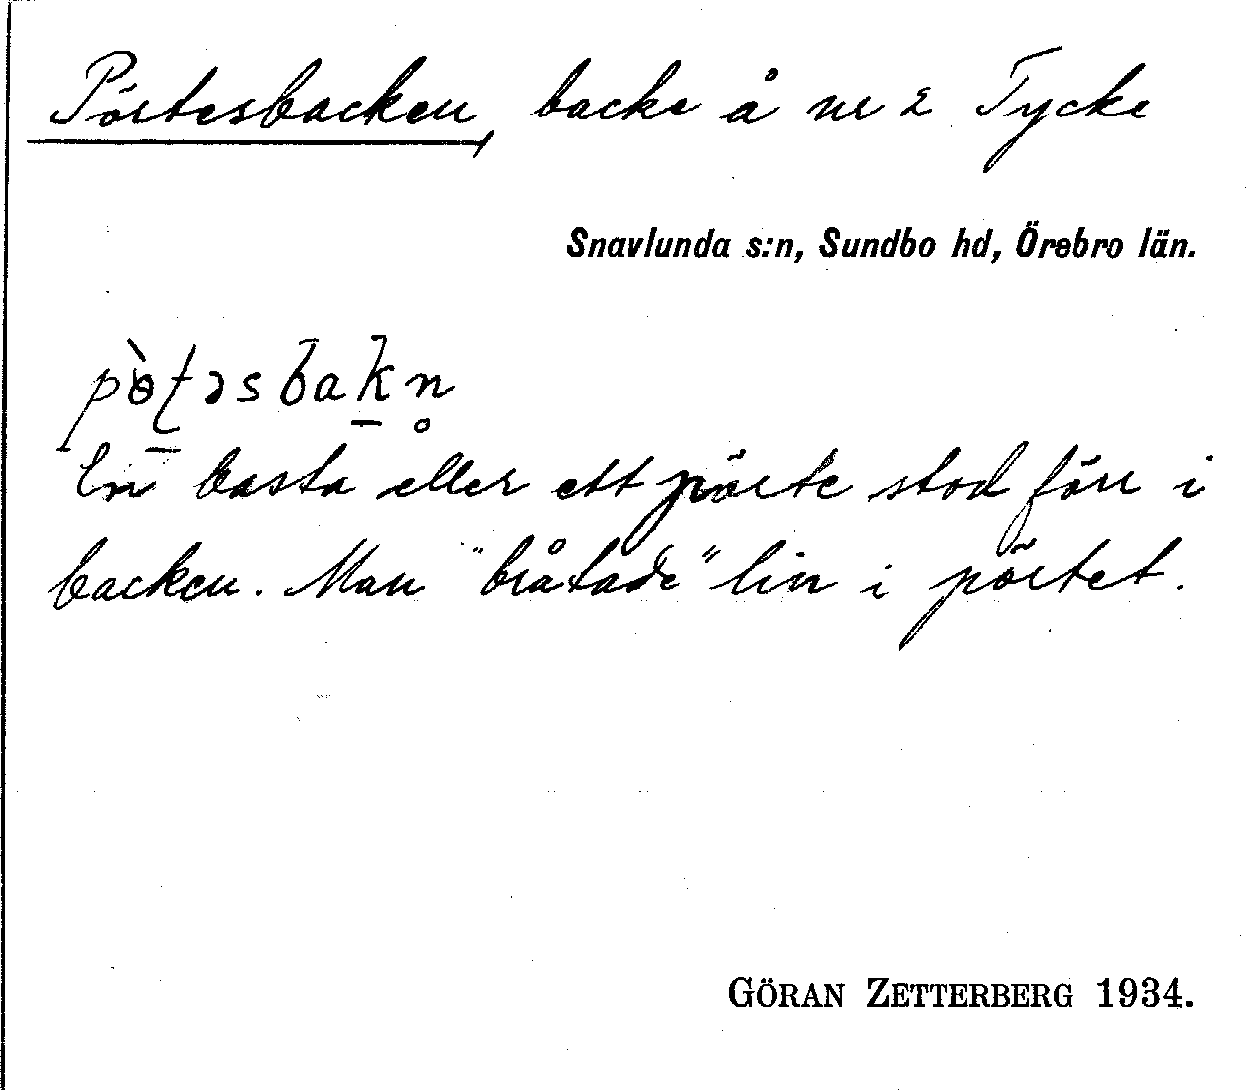 Pörtesbacken, backe å nr 2 Tycke
Snavlunda s:n, Sundbo hd, Örebro län.
pɵ̀ʈəsbakn̥
En basta eller ett pörte stod förr i
backen. Man "bråtade" lin i pörtet.
GÖRAN ZETTERBERG 1934.